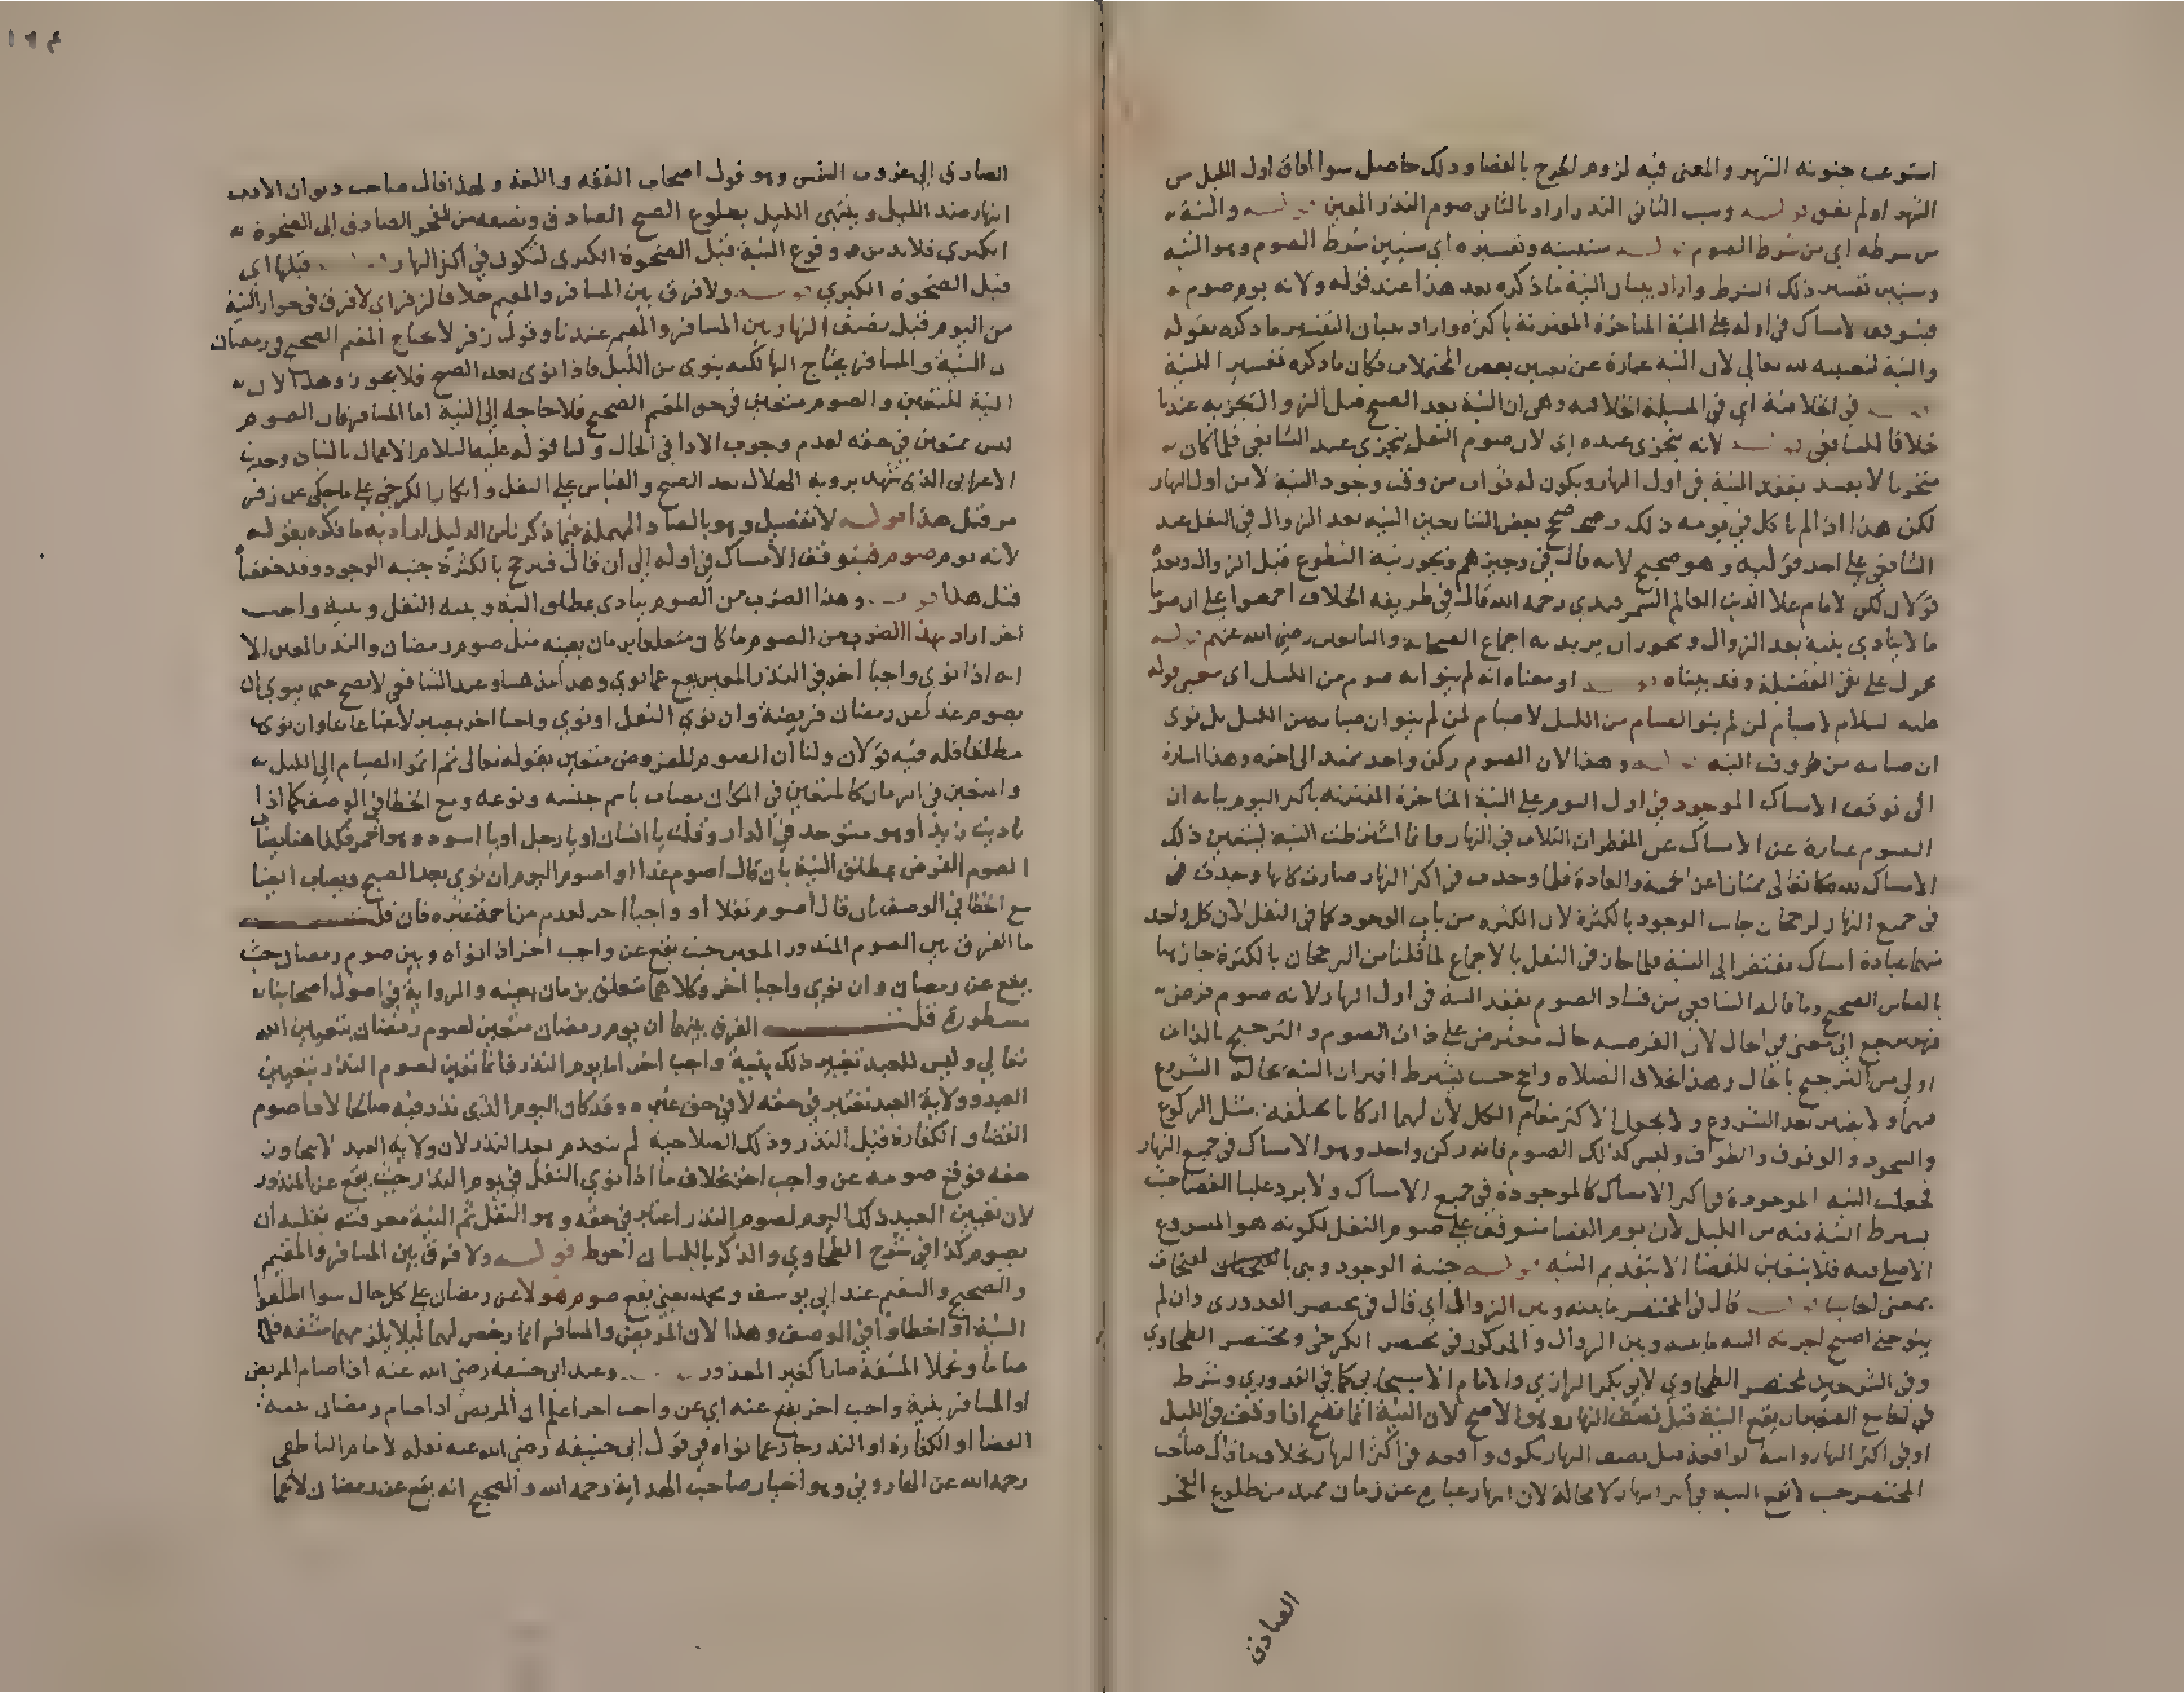 استوعب جنونه الشهر والمعنى فيه لزوم الحرج بالقضا وذلك حاصل سوا افاق اول الليل من
الشهر او لم يفق قوله وسبب الثاني النذر اراد بالثاني صوم النذر المعين قوله والنية
من شرطه اي من شرط الصوم قوله سنبينه وتفسيره اي سنبين شرط الصوم وهو النية
وسنبين تفسير ذلك الشرط واراد ببيان النية ما ذكره بعد هذا عند قوله ولانه يوم صوم
فيتوقف الامساك في اوله على النية المتاخرة المقترنة باكثره واراد ببيان التفسير ما ذكره بقوله
والنية لتعيينه لله تعالى لان النية عبارة عن تعيين بعض المحتملات فكان ما ذكره تفسيرا للنية
قوله في الخلافية اي في المسئلة الخلافية وهي ان النية بعد الصبح قبل الزوال تجزيه عندنا
خلافا للشافعي قوله لانه يتجزى عنده اي لان صوم النفل يتجزى عند الشافعي فلما كان
متجزيا لا يفسد بفقد النية في اول النهار ويكون له ثواب من وقت وجود النية لا من اول النهار
لكن هذا اذا لم ياكل في يومه ذلك وصحح بعض الشارحين النية بعد الزوال في النفل عند
الشافعي على احد قوليه وهو صحيح لانه قال في وجيزهم وتجوز نية التطوع قبل الزوال وبعده
قولان لكن الامام علا الدين العالم السمرقندي رحمه الله قال في طريقة الخلاف اجمعوا على ان صوما
ما لا يتادى بنية بعد الزوال ويجوز ان يريد به اجماع الصحابة والتابعين رضي الله عنهم قوله
محمول على نفي الفضيلة وقد بيناه قوله او معناه انه لم ينو انه صوم من الليل اي معنى قوله
عليه السلام لا صيام لمن لم ينو الصيام من الليل لا صيام لمن لم ينو ان صيامه من الليل بل نوى
ان صيامه من وقت النية قوله وهذا لان الصوم ركن واحد ممتد الى اخره وهذا اشارة
الى توقف الامساك الموجود في اول اليوم على النية المتاخرة المقترنة باكثر اليوم بيانه ان
الصوم عبارة عن الامساك عن المفطرات الثلاث في النهار وانما اشترطت النية ليتعين ذلك
الامساك لله تعالى ممتازا عن الحمية والعادة فلما وجدت في اكثر النهار صارت كانها وجدت
في جميع النهار لرجحان جانب الوجود بالكثرة لان الكثرة من باب الوجود كما في النفل لان كل واحد
منهما عبادة امساك يفتقر الى النية فلما جاز في النفل بالاجماع لما قلنا من الرجحان بالكثرة جاز هنا
بالقياس الصحيح وما قاله الشافعي من فساد الصوم بفقد النية في اول النهار لانه صوم فرض
فهو يرجع الى معنى في الحال لان الفرضية حال معترض على ذات الصوم والترجيح بالذات
اولى من الترجيح بالحال وهذا بخلاف الصلاه والحج حيث يشترط اقتران النية بحالة الشروع
فيهما ولا يعتبر بعد الشروع ولا يجعل الاكثر مقام الكل لان لهما اركانا مختلفة مثل الركوع
والسجود والوقوف والطواف وليس كذلك الصوم فانه ركن واحد وهو الامساك في جميع النهار
فجعلت النية الموجودة في اكثر الامساك كالموجودة في جميع الامساك ولا يرد علينا القضا حيث
يشترط النية فيه من الليل لان يوم القضا متوقف على صوم النفل لكونه هو المشروع
الاصلي فيه فلا يتعين للقضا الا بتقديم النية قوله جنبة الوجود وهي
بمعنى الجانب قوله قال في المختصر ما بينه وبين الزوال اي قال في مختصر القدوري وان لم
ينو حتى اصبح اجزته النية ما بينه وبين الزوال والمذكور في مختصر الكرخي ومختصر الطحاوي
وفي الشرحين لمختصر الطحاوي لابي بكر الرازي والامام الاسبيجابي كما في القدوري وشرط
في الجامع الصغير ان يقع النية قبل نصف النهار وهو الاصح لان النية انما تصح اذا وقعت في الليل
او في اكثر النهار والنية الواقعة قبل نصف النهار تكون واقعة في اكثر النهار بخلاف ما قال صاحب
المختصر حيث لا تقع النية في اكثر النهار لا محالة لان النهار عبارة عن زمان ممتد من طلوع الفجر
الصادق
١٦٤
الصادق إلى غروب الشمس وهو قول اصحاب الفقه واللغة ولهذا قال صاحب ديوان الادب
النهار ضد الليل وينتهي الليل بطلوع الصبح الصادق ونصفه من الفجر الصادق إلى الضحوة
الكبرى فلا بد من وقوع النية قبل الضحوة الكبرى لتكون في اكثر النهار قوله قبلها اي
قبل الضحوة الكبرى قوله ولا فرق بين المسافر والمقيم خلافا لزفر اي لا فرق في جواز النية
من اليوم قبل نصف النهار بين المسافر والمقيم عندنا وقول زفر لا يحتاج المقيم الصحيح في رمضان
الى النية والمسافر يحتاج اليها لكنه ينوي من الليل فاذا نوى بعد الصبح فلا يجوز وهذا لان
النية للتعيين والصوم متعين في حق المقيم الصحيح فلا حاجة إلى النية اما المسافر فان الصوم
ليس بمتعين في حقه لعدم وجوب الادا في الحال ولنا قوله عليه السلام الاعمال بالنيات وحديث
الاعرابي الذي شهد بروية الهلال بعد الصبح والقياس على النفل وانكار الكرخي على ما حكي عن زفر
مر قبل هذا قوله لا تفصيل وهو بالصاد المهملة فيما ذكرنا من الدليل اراد به ما ذكره بقوله
لانه يوم صوم فيتوقف الامساك في اوله إلى ان قال فترجح بالكثرة جنبة الوجود وقد حققناه
قبل هذا قوله وهذا الضرب من الصوم يتادى بمطلق النية وبنية النفل وبنية واجب
اخر اراد بهذا الضرب من الصوم ما كان متعلقا بزمان بعينه مثل صوم رمضان والنذر المعين الا
انه اذا نوى واجبا اخر في النذر المعين يقع عما نوى وهذا مذهبنا وعند الشافعي لا يصح حتى ينوي ان
يصوم غدا عن رمضان فريضة وان نوى النفل او نوى واجبا اخر يصير لاغيا عابثا وان نوى
مطلقا فله فيه قولان ولنا ان الصوم المفروض متعين بقوله تعالى ثم اتموا الصيام إلى الليل
والمتعين في الزمان كالمتعين في المكان يصاب باسم جنسه ونوعه ومع الخطا في الوصف كما اذا
ناديت زيدا وهو متوحد في الدار وقلت يا انسان او يا رجل او يا اسود وهو احمر فكذا هنا يصاب
الصوم الفرض بمطلق النية بان قال اصوم غدا او اصوم اليوم ان نوى بعد الصبح ويصاب ايضا
مع الخطا في الوصف بان قال اصوم نفلا او واجبا اخر لعدم مزاحمة غيره فان قلت
ما الفرق بين الصوم المنذور المعين حيث يقع عن واجب اخر اذا نواه وبين صوم رمضان حيث
يقع عن رمضان وان نوى واجبا اخر وكلاهما متعلق بزمان بعينه والرواية في اصول اصحابنا
مسطورة قلت الفرق بينهما ان يوم رمضان متعين لصوم رمضان بتعيين الله
تعالى وليس للعبد تغيير ذلك بنية واجب اخر اما يوم النذر فانما تعين لصوم النذر بتعيين
العبد وولاية العبد تعتبر في حقه لا في حق غيره وقد كان اليوم الذي نذر فيه صالحا لاداء صوم
القضا والكفارة قبل النذر وذلك الصلاحية لم ينعدم بعد النذر لان ولاية العبد لا يجاوز
حقه فوقع صومه عن واجب اخر بخلاف ما اذا نوى النفل في يوم النذر حيث يقع عن المنذور
لان تعيين العبد ذلك اليوم لصوم النذر اعتبر في حقه وهو النفل ثم النية معرفته بقلبه ان
يصوم كذا في شرح الطحاوي والذكر باللسان احوط قوله ولا فرق بين المسافر والمقيم
والصحيح والسقيم عند ابي يوسف ومحمد يعني يقع صوم هولا عن رمضان على كل حال سوا اطلقوا
النية او اخطاوا في الوصف وهذا لان المريض والمسافر انما رخص لهما ليلا يلزمهما مشقة فلما
صاما وتحملا المشقة صارا كغير المعذور قوله وعند ابي حنيفة رضي الله عنه اذا صام المريض
او المسافر بنية واجب اخر يقع عنه اي عن واجب اخر اعلم ان المريض اذا صام رمضان بنية
القضا او الكفارة او النذر جاز عما نواه في قول ابي حنيفة رضي الله عنه نقله الامام الناطفي
رحمه الله عن الهاروني وهو اختيار صاحب الهداية رحمه الله والصحيح انه يقع عن رمضان لانما